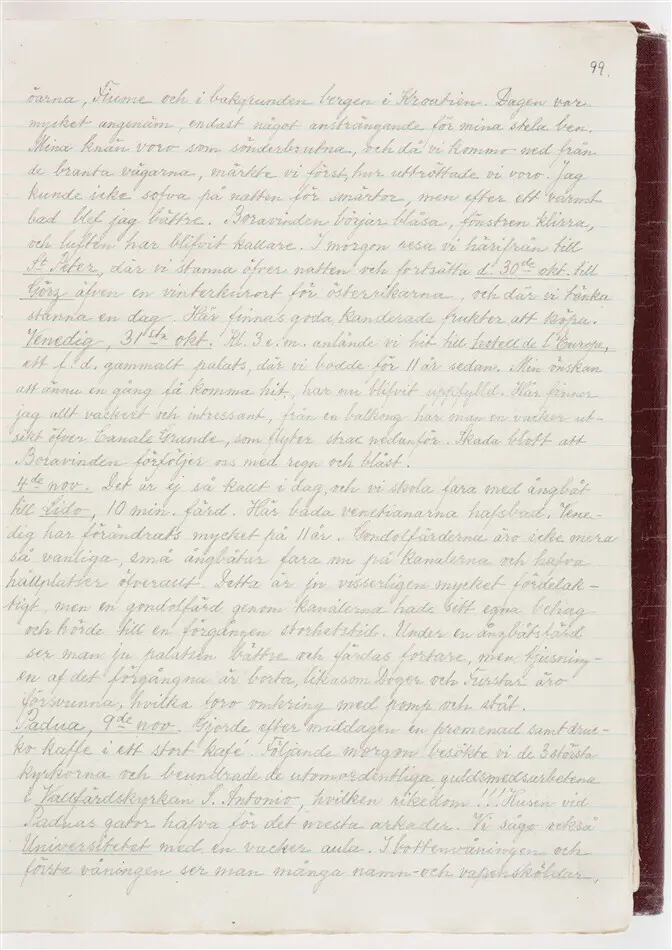 99.
öarna, Fiume och i bakgrunden bergen i Kroatien. Dagen var
mycket angenäm, endast något ansträngande för mina stela ben.
Mina knän voro som sönderbrutna, och då vi kommo ned från
de branta vägarna, märkte vi först, hur uttröttade vi voro. Jag
kunde icke sofva på natten för smärtor, men efter ett varmt
bad blef jag bättre. Boravinden börjar blåsa, fönstren klirra,
och luften har blifvit kallare. I morgon resa vi härifrån till
St Peter, där vi stanna öfver natten och fortsätta d. 30de okt. till
Görz äfven en vinterkurort för österrikarna, och där vi tänka
stanna en dag. Här finnas goda kanderade frukter att köpa.
Venedig, 31sta okt. Kl. 3 e.m. anlände vi hit till Hotell de l'Europe,
ett f. d. gammalt palats, där vi bodde för 11 år sedan. Min önskan
att ännu en gång få komma hit, har nu blifvit uppfylld. Här finner
jag allt vackert och intressant, från en balkong har man en vacker ut-
sikt öfver Canale Grande, som flyter strax nedanför. Skada blott att
Boravinden förföljer oss med regn och blåst.
4de nov. Det är ej så kallt i dag, och vi skola fara med ångbåt
till Lido, 10 min. färd. Här bada venetianarna hafsbad. Vene-
dig har förändrats mycket på 11 år. Gondolfärderna äro icke mera
så vanliga, små ångbåtar fara nu på kanalerna och hafva
hållplatser öfverallt. Detta är ju visserligen mycket fördelak-
tigt, men en gondolfärd genom kanalerna hade sitt egna behag
och hörde till en förgången storhetstid. Under en ångbåtsfärd
ser man ju palatsen bättre och färdas fortare, men tjusning-
en af det förgångna är borta, likasom Doger och Furstar äro
försvunna, hvilka foro omkring med pomp och ståt.
Padua, 9de nov. Gjorde efter middagen en promenad samt druc-
ko kaffe i ett stort kafé. Följande morgon besökte vi de 3 största
kyrkorna och beundrade de utomordentliga guldsmedsarbetena
i Vallfärdskyrkan S. Antonio, hvilken rikedom!!! Husen vid
Paduas gator hafva för det mesta arkader. Vi sågo också
Universitetet med en vacker aula. I bottenvåningen och
första våningen ser man många namn- och vapensköldar,